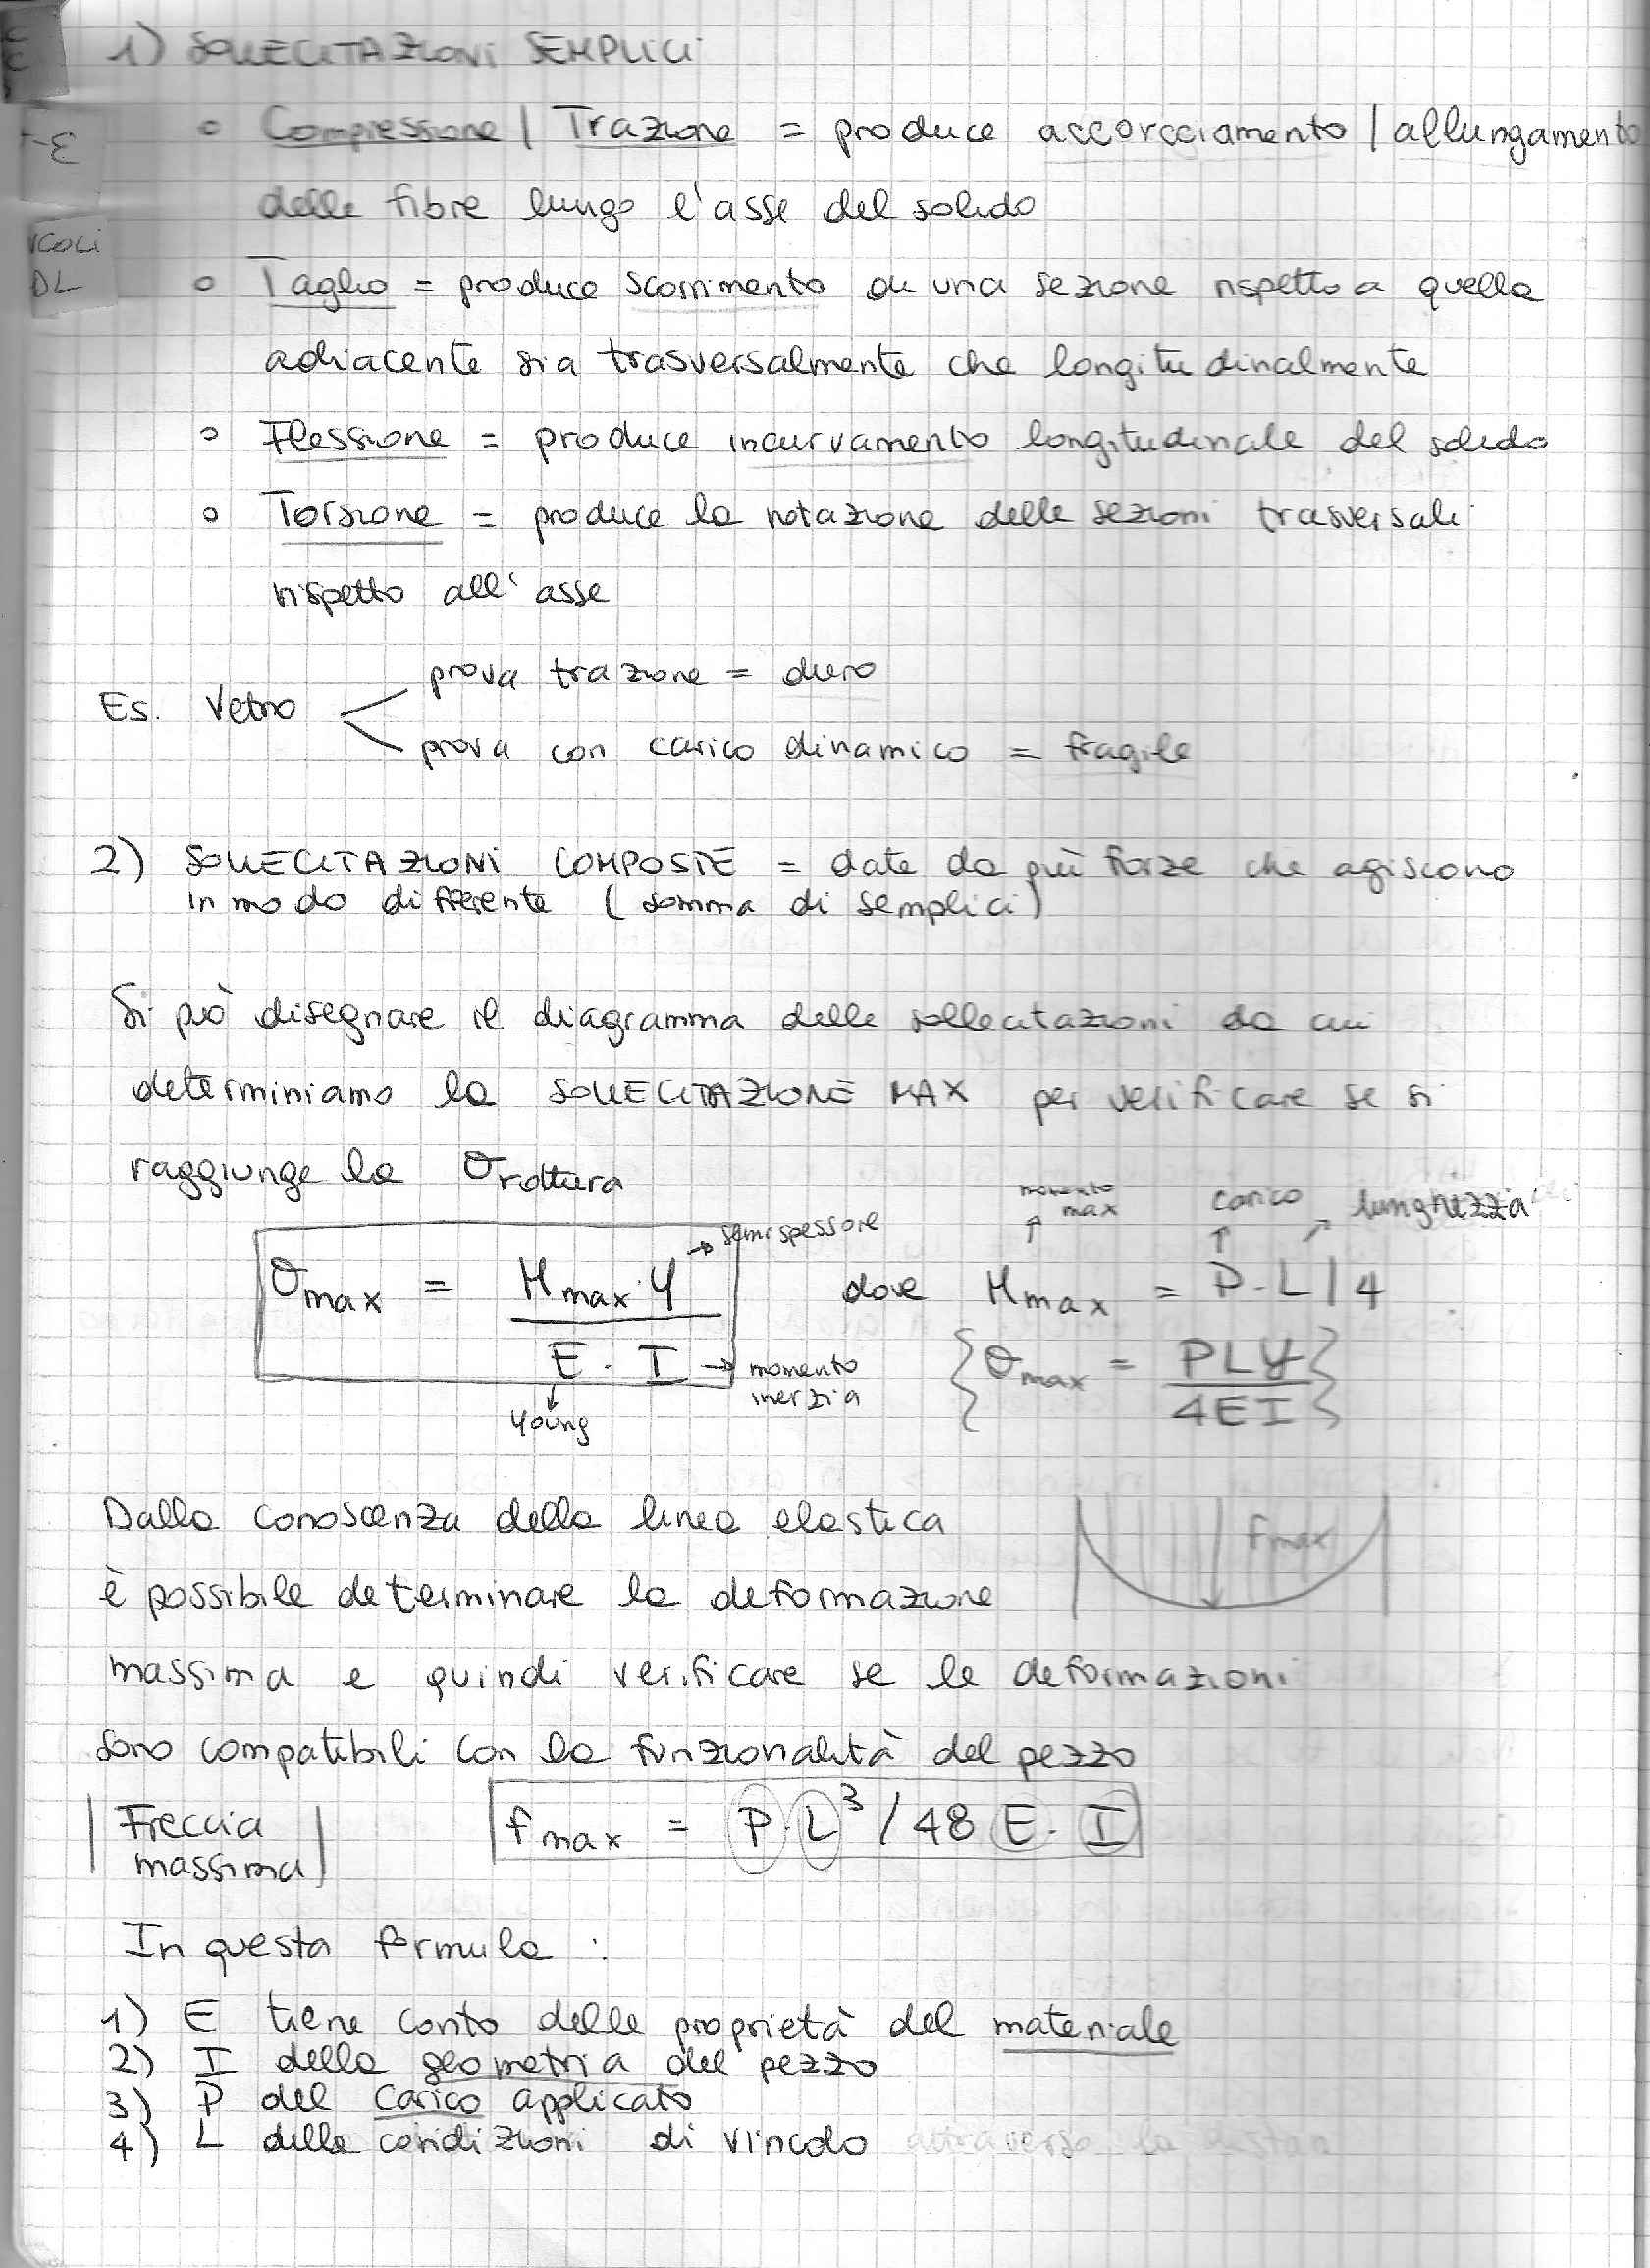 1) SOLLECITAZIONI SEMPLICI
-E
ICOLI
DL
o Compressione | Trazione = produce accorciamento | allungamento
delle fibre lungo l'asse del solido
o Taglio = produce scorrimento di una sezione rispetto a quella
adiacente sia trasversalmente che longitudinalmente
o Flessione = produce incurvamento longitudinale del solido
o Torsione = produce la rotazione delle sezioni trasversali
rispetto all'asse
prova trazione = duro
Es. Vetro
prova con carico dinamico = fragile
2) SOLLECITAZIONI COMPOSTE = date da più forze che agiscono
in modo differente (somma di semplici)
Si può disegnare il diagramma delle sollecitazioni da cui
determiniamo la SOLLECITAZIONE MAX per verificare se si
raggiunge la σrottura
momento max carico lunghezza
→ semispessore
σmax = Mmax·y / E · I dove Mmax = P·L/4
→ momento inerzia
↓ Young
{σmax = PLy / 4EI}
Dalla conoscenza della linea elastica
fmax
è possibile determinare la deformazione
massima e quindi verificare se le deformazioni
sono compatibili con la funzionalità del pezzo
|Freccia massima| fmax = P·L³/48 E·I
In questa formula :
1) E tiene conto delle proprietà del materiale
2) I della geometria del pezzo
3) P del carico applicato
4) L delle condizioni di vincolo attraverso la